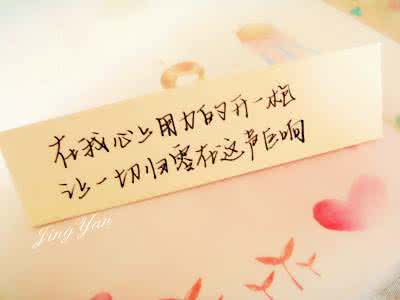 在我心上用力的开一炮
让一切归零在这声巨响
Jing Yan